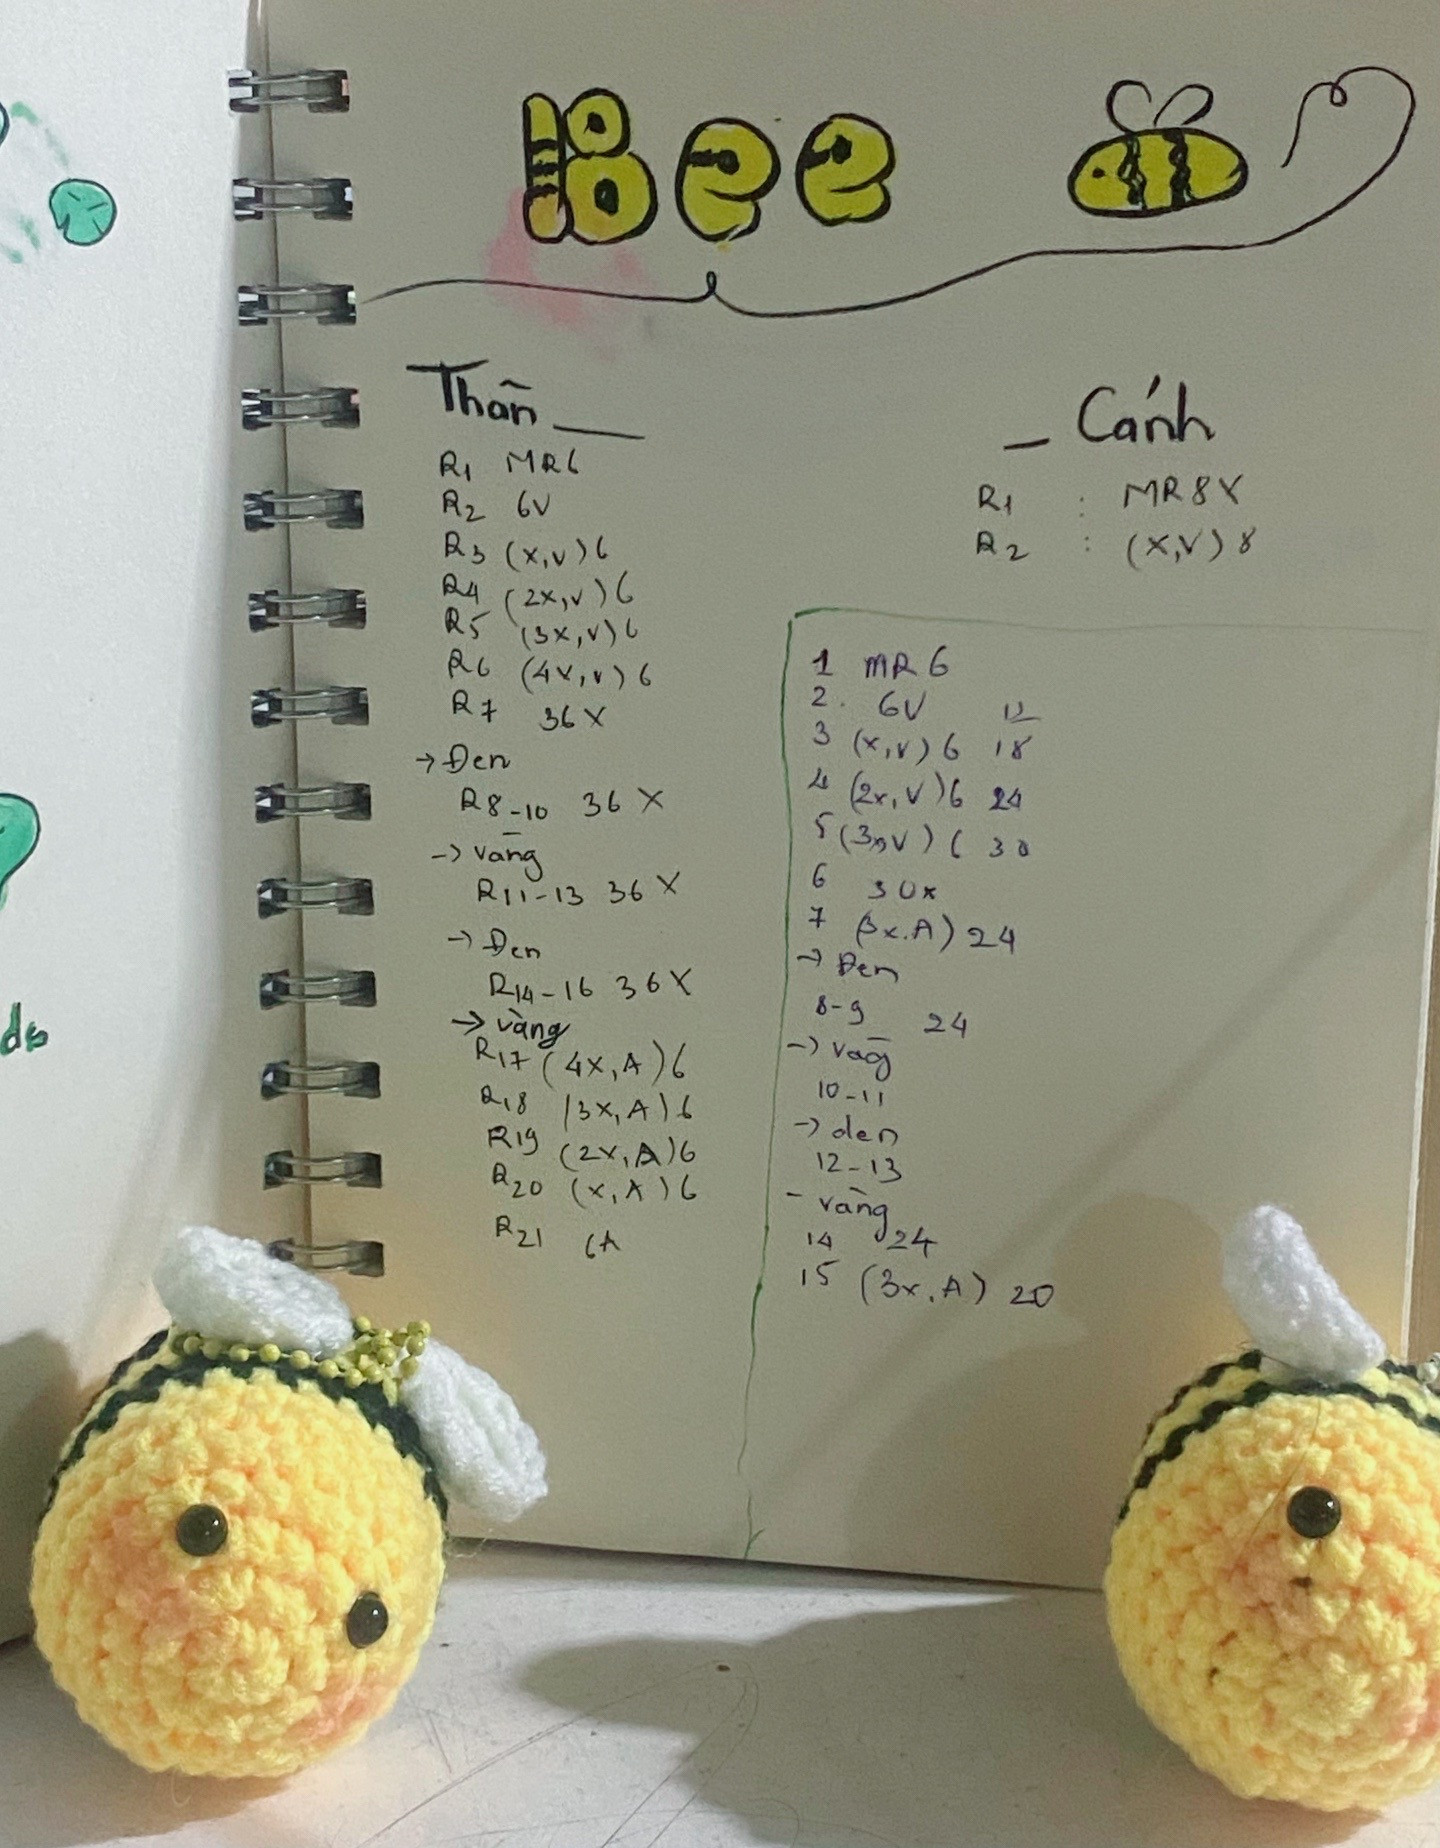 Bee
Thân
R1 MR6
R2 6V
R3 (x,v)6
R4 (2x,v)6
R5 (3x,v)6
R6 (4x,v)6
R7 36X
→ Đen
R8-10 36X
→ vàng
R11-13 36X
→ Đen
R14-16 36X
→ vàng
R17 (4x,A)6
R18 (3x,A)6
R19 (2x,A)6
R20 (x,A)6
R21 6A
Cánh
R1 : MR8X
R2 : (X,V)8
1 MR6
2. 6V 12
3 (x,v)6 18
4 (2x,V)6 24
5 (3x,V)6 30
6 30x
7 (3x.A) 24
→ Đen
8-9 24
→ vàg
10-11
→ đen
12-13
- vàng
14 24
15 (3x,A) 20